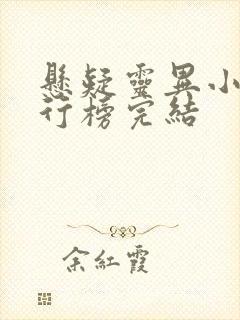 懸疑靈異小
行榜完結
余紅霞